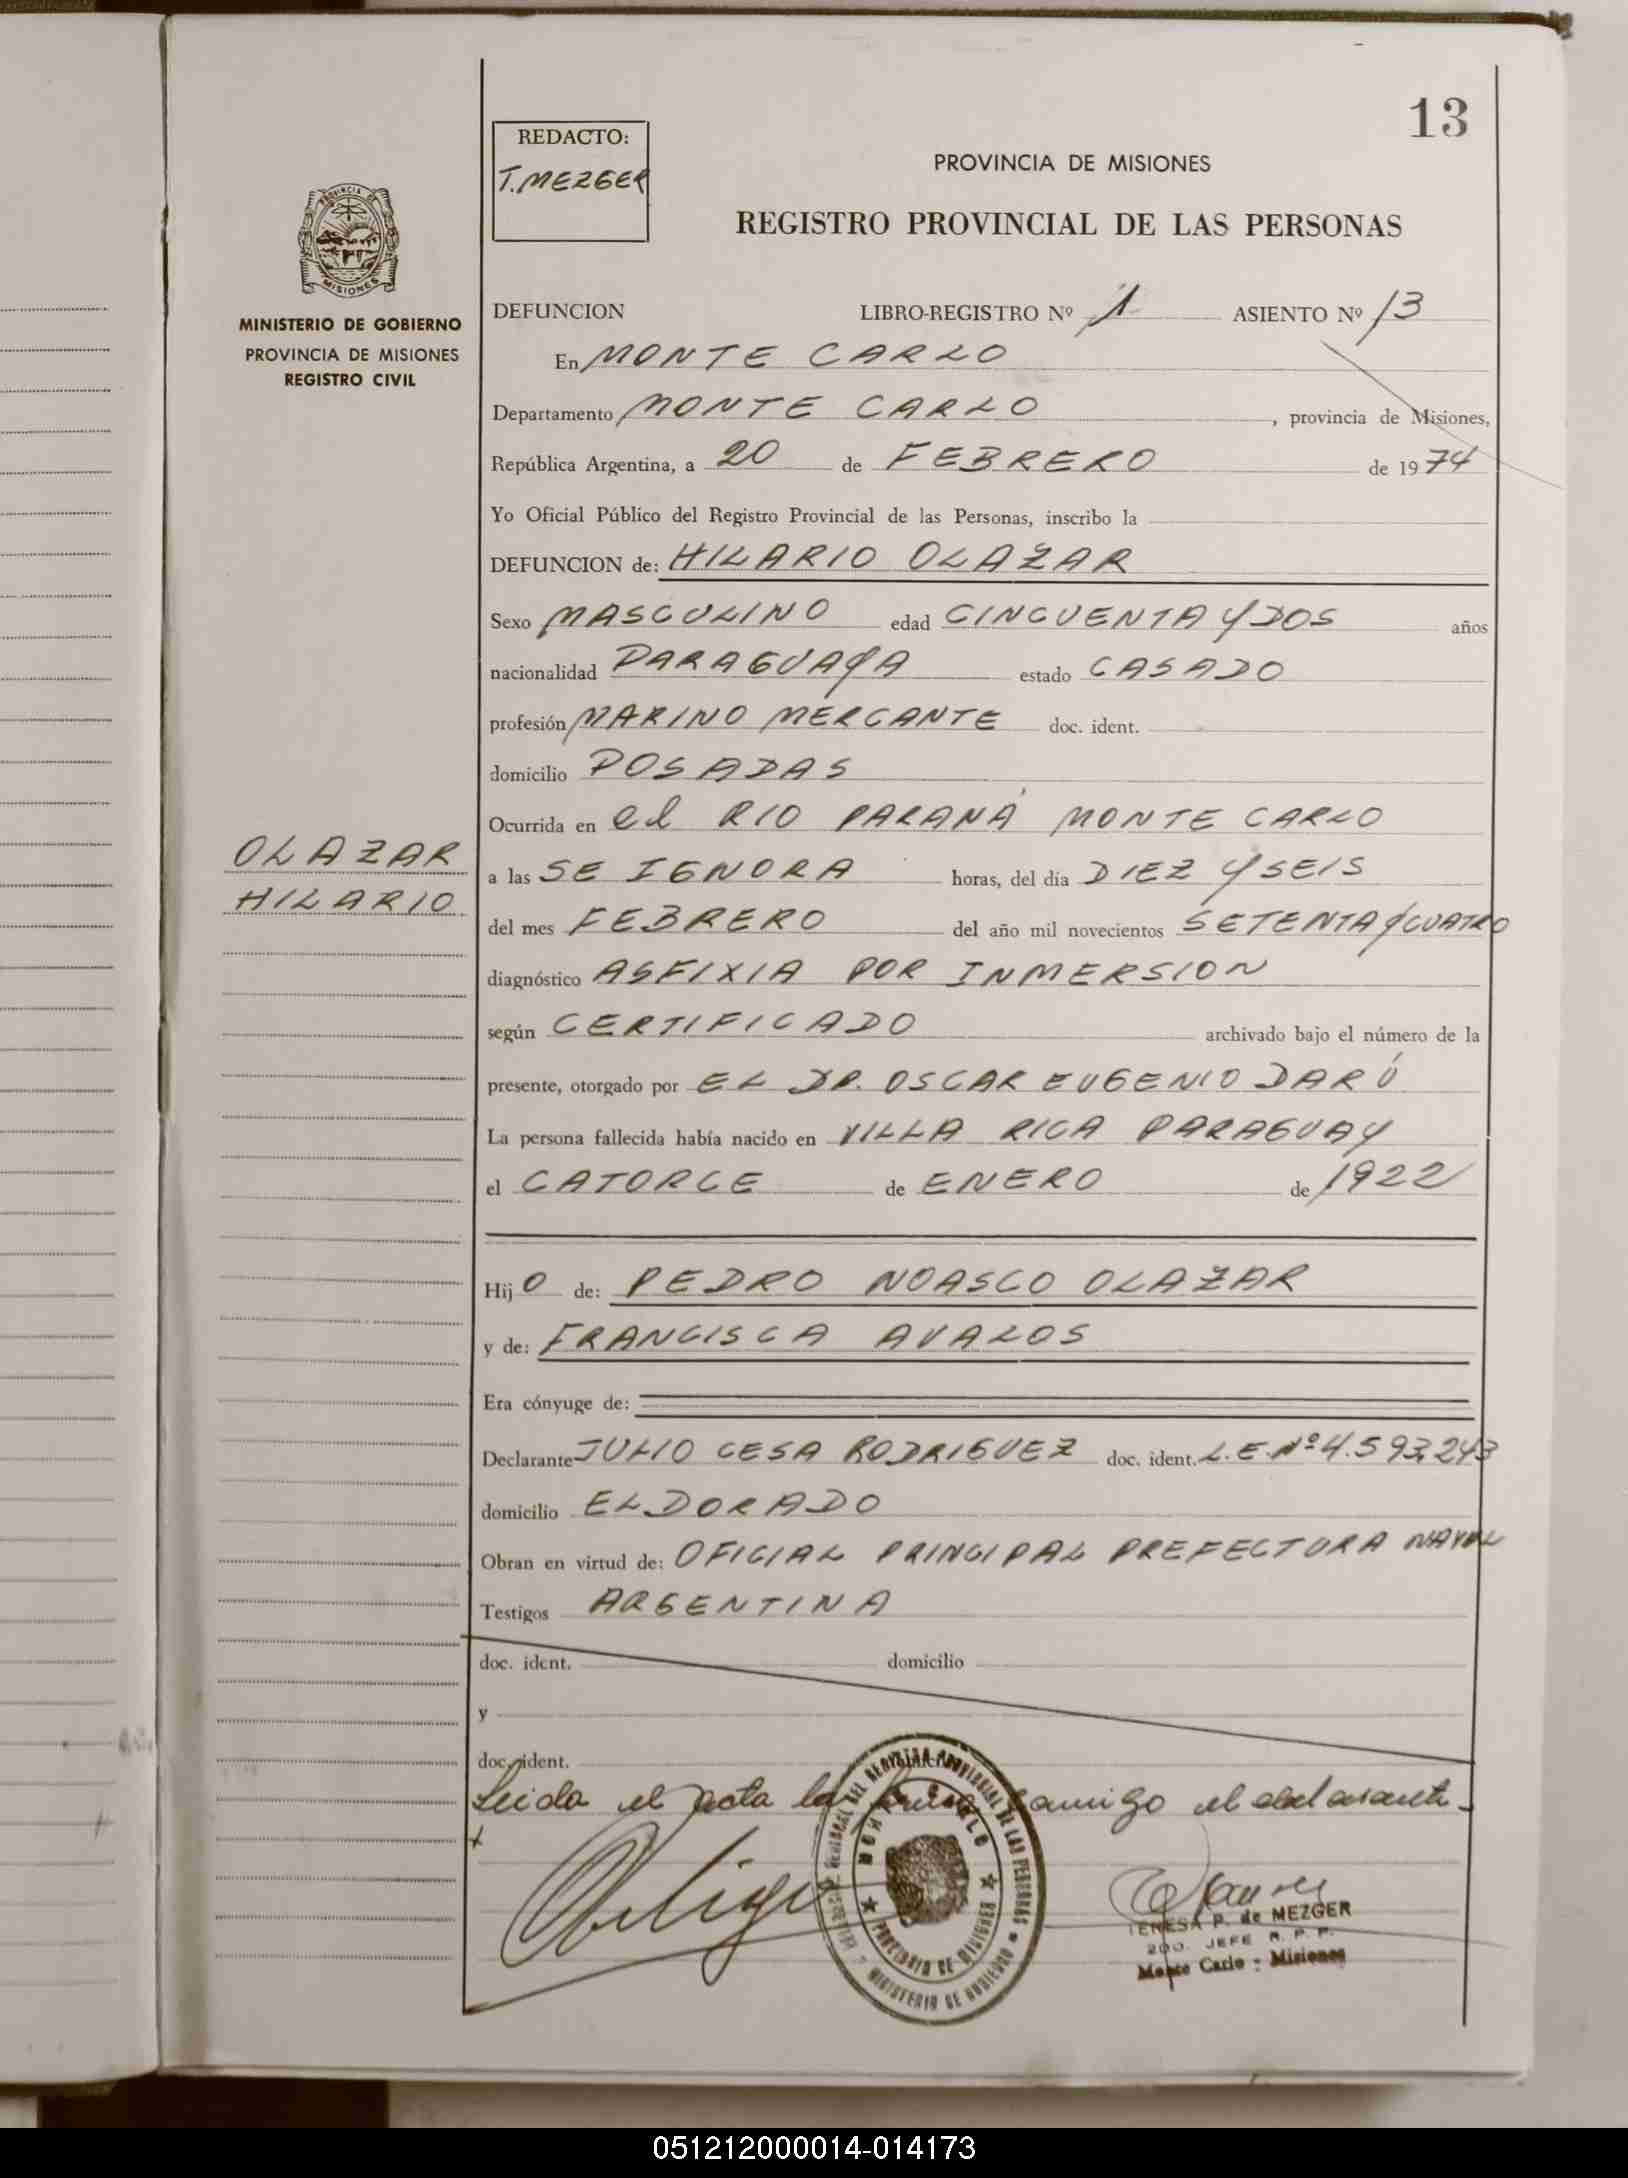 13
REDACTO:
T. MEZGER
PROVINCIA DE MISIONES
REGISTRO PROVINCIAL DE LAS PERSONAS
PROVINCIA DE
MISIONES
MINISTERIO DE GOBIERNO
PROVINCIA DE MISIONES
REGISTRO CIVIL
DEFUNCION LIBRO-REGISTRO Nº 1 ASIENTO Nº 13
En MONTE CARLO
Departamento MONTE CARLO, provincia de Misiones,
República Argentina, a 20 de FEBRERO de 1974
Yo Oficial Público del Registro Provincial de las Personas, inscribo la
DEFUNCION de: HILARIO OLAZAR
Sexo MASCULINO edad CINCUENTA Y DOS años
nacionalidad PARAGUAYA estado CASADO
profesión MARINO MERCANTE doc. ident.
domicilio POSADAS
Ocurrida en el RIO PARANÁ MONTE CARLO
OLAZAR
HILARIO
a las SE IGNORA horas, del día DIEZ Y SEIS
del mes FEBRERO del año mil novecientos SETENTA Y CUATRO
diagnóstico ASFIXIA POR INMERSION
según CERTIFICADO archivado bajo el número de la
presente, otorgado por EL DR. OSCAR EUGENIO DARÚ
La persona fallecida había nacido en VILLA RICA PARAGUAY
el CATORCE de ENERO de 1922
Hij O de: PEDRO NOASCO OLAZAR
y de: FRANCISCA AVALOS
Era cónyuge de:
Declarante JULIO CESA RODRIGUEZ doc. ident. L.E. Nº 4.593.243
domicilio ELDORADO
Obran en virtud de: OFICIAL PRINCIPAL PREFECTURA NAVAL
Testigos ARGENTINA
doc. ident. domicilio
y
doc. ident.
Leida el acta la conmigo el
MONTE CARLO
PROVINCIA DE MISIONES
MINISTERIO DE GOBIERNO
TERESA P. de MEZGER
JEFE R. P. P.
Monte Carlo - Misiones
051212000014-014173